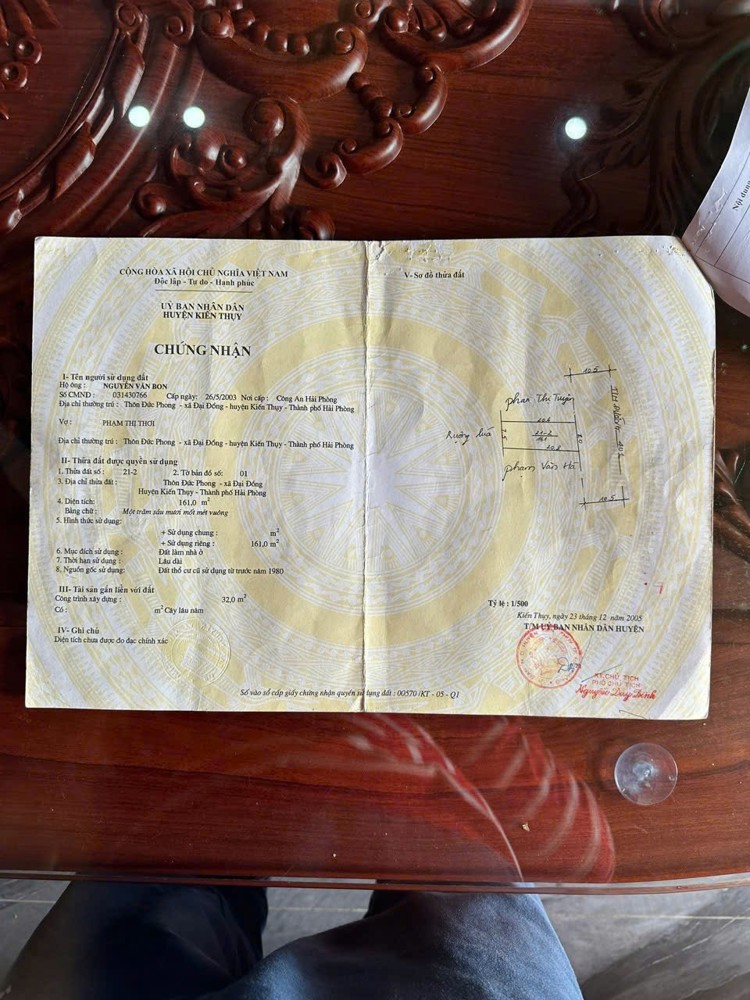 CỘNG HÒA XÃ HỘI CHỦ NGHĨA VIỆT NAM
Độc lập - Tự do - Hạnh phúc
UỶ BAN NHÂN DÂN
HUYỆN KIẾN THỤY
CHỨNG NHẬN
I- Tên người sử dụng đất
Hộ ông : NGUYỄN VĂN BON
Số CMND : 031430766 Cấp ngày: 26/5/2003 Nơi cấp : Công An Hải Phòng
Địa chỉ thường trú : Thôn Đức Phong - xã Đại Đồng - huyện Kiến Thụy - Thành phố Hải Phòng
Vợ : PHẠM THỊ THƠI
Địa chỉ thường trú : Thôn Đức Phong - xã Đại Đồng - huyện Kiến Thụy - Thành phố Hải Phòng
II- Thửa đất được quyền sử dụng
1. Thửa đất số : 21-2 2. Tờ bản đồ số: 01
3. Địa chỉ thửa đất : Thôn Đức Phong - xã Đại Đồng
Huyện Kiến Thụy - Thành phố Hải Phòng
4. Diện tích: 161,0 m²
Bằng chữ : Một trăm sáu mươi mốt mét vuông
5. Hình thức sử dụng:
+ Sử dụng chung : m²
+ Sử dụng riêng : 161,0 m²
6. Mục đích sử dụng : Đất làm nhà ở
7. Thời hạn sử dụng : Lâu dài
8. Nguồn gốc sử dụng : Đất thổ cư cũ sử dụng từ trước năm 1980
III- Tài sản gắn liền với đất
Công trình xây dựng : 32,0 m²
Có : m² Cây lâu năm
IV- Ghi chú
Diện tích chưa được đo đạc chính xác
Số vào sổ cấp giấy chứng nhận quyền sử dụng đất : 00570 /KT - 05 - Q1
V- Sơ đồ thửa đất
10.5
phạm Thị Tuyện
Ruộng lúa
7.5
21-2
161
20.8
8.0
phạm Văn Hà
10.5
Tỷ lệ : 1/500
Kiến Thụy, ngày 23 tháng 12 năm 2005
T/M UỶ BAN NHÂN DÂN HUYỆN
KT.CHỦ TỊCH
PHÓ CHỦ TỊCH
Nguyễn Duy Bình
Nội dung